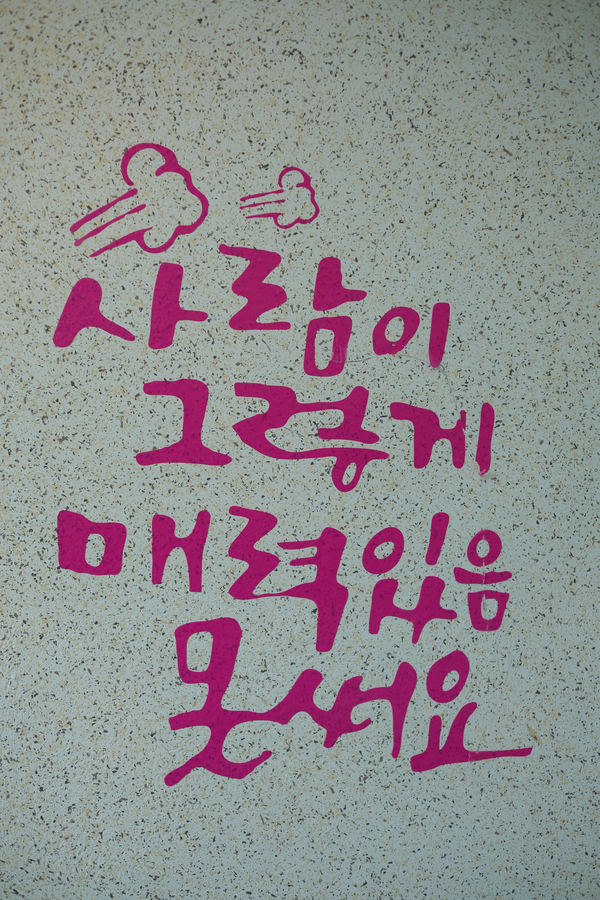 사람이
그렇게
매력있음
못써요